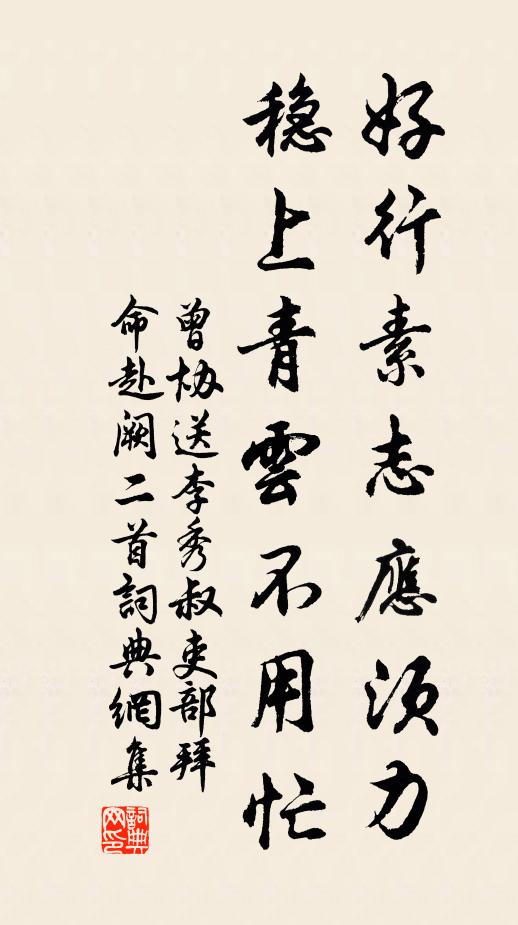 好行素志應須力
穏上青雲不用忙
曾協送李秀叔吏部拜
命赴闕二首詞典網集
詞典
网印